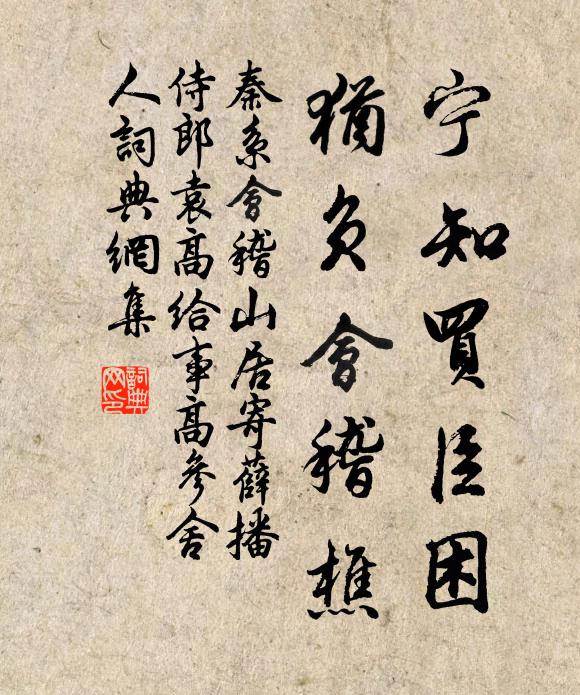 宁知買臣困
猶負會稽樵
秦系會稽山居寄薛播
侍郎袁高給事高參舍
人詞典網集
詞典網印